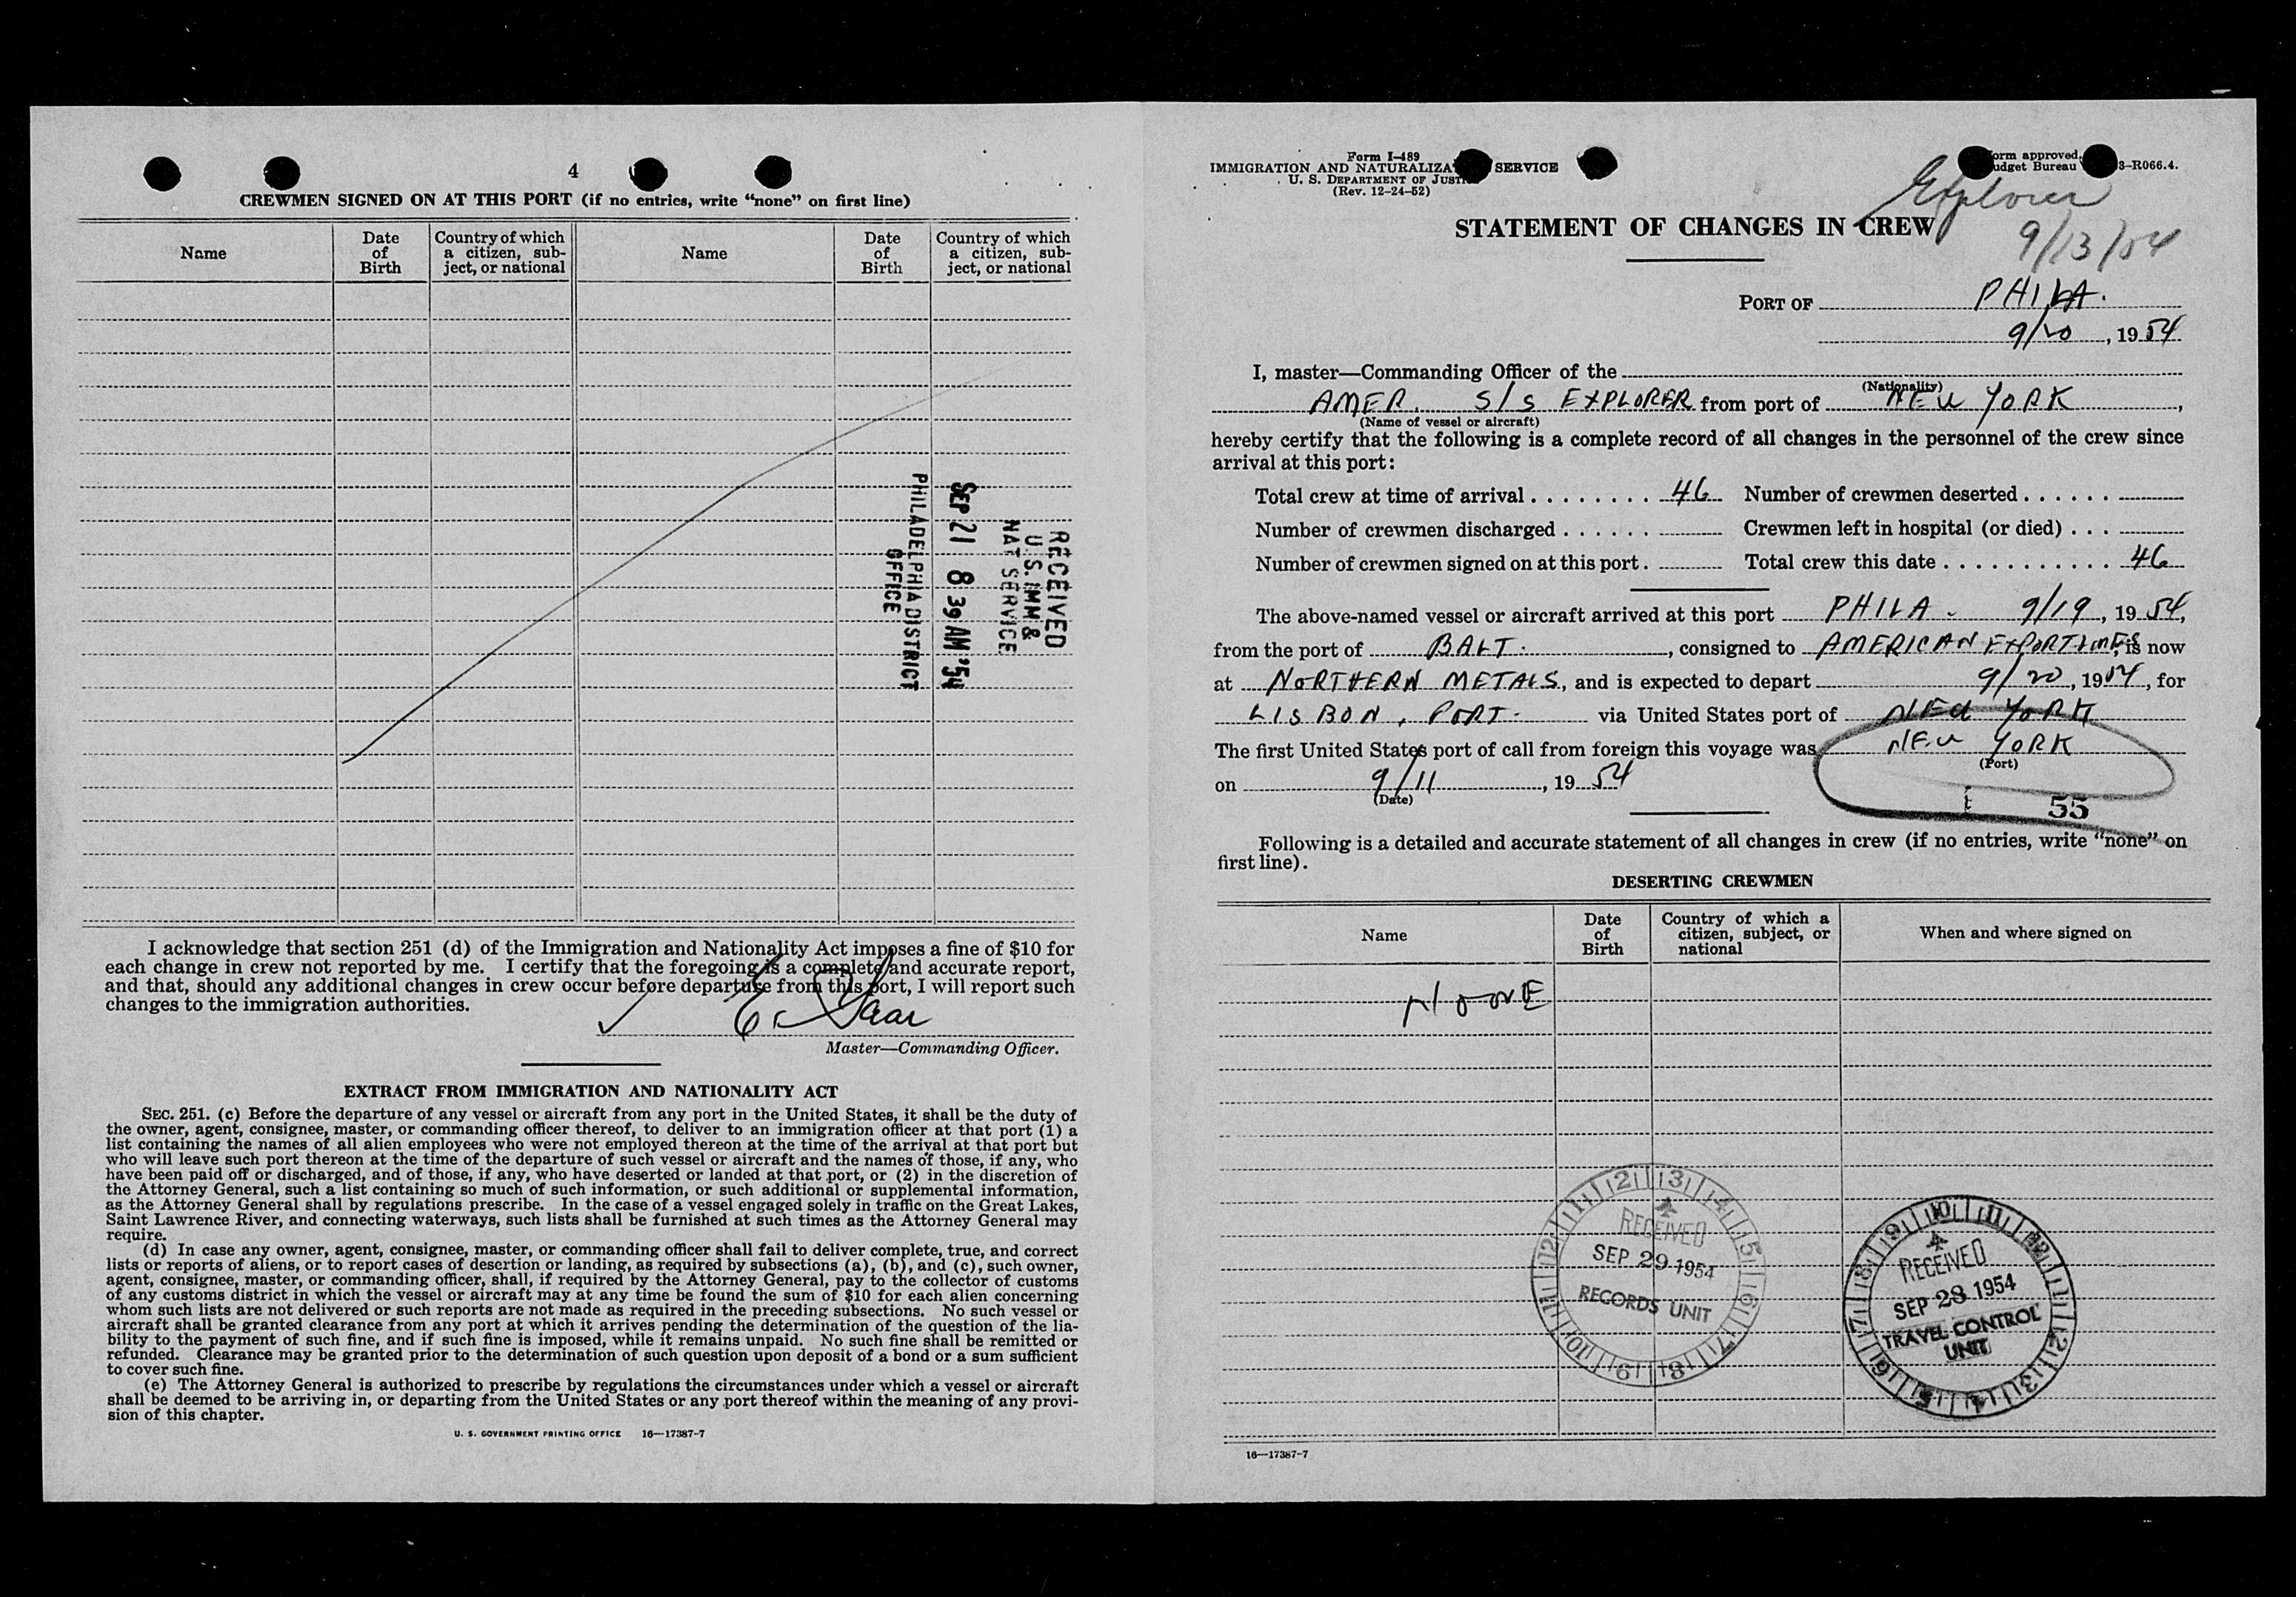 4
CREWMEN SIGNED ON AT THIS PORT (if no entries, write “none” on first line)
Name
Date of Birth
Country of which a citizen, subject, or national
Name
Date of Birth
Country of which a citizen, subject, or national
RECEIVED
U.S. IMM &
NAT SERVICE
SEP 21 8 39 AM '54
PHILADELPHIA DISTRICT
OFFICE
I acknowledge that section 251 (d) of the Immigration and Nationality Act imposes a fine of $10 for
each change in crew not reported by me. I certify that the foregoing is a complete and accurate report,
and that, should any additional changes in crew occur before departure from this port, I will report such
changes to the immigration authorities.
Master—Commanding Officer.
EXTRACT FROM IMMIGRATION AND NATIONALITY ACT
SEC. 251. (c) Before the departure of any vessel or aircraft from any port in the United States, it shall be the duty of
the owner, agent, consignee, master, or commanding officer thereof, to deliver to an immigration officer at that port (1) a
list containing the names of all alien employees who were not employed thereon at the time of the arrival at that port but
who will leave such port thereon at the time of the departure of such vessel or aircraft and the names of those, if any, who
have been paid off or discharged, and of those, if any, who have deserted or landed at that port, or (2) in the discretion of
the Attorney General, such a list containing so much of such information, or such additional or supplemental information,
as the Attorney General shall by regulations prescribe. In the case of a vessel engaged solely in traffic on the Great Lakes,
Saint Lawrence River, and connecting waterways, such lists shall be furnished at such times as the Attorney General may
require.
(d) In case any owner, agent, consignee, master, or commanding officer shall fail to deliver complete, true, and correct
lists or reports of aliens, or to report cases of desertion or landing, as required by subsections (a), (b), and (c), such owner,
agent, consignee, master, or commanding officer, shall, if required by the Attorney General, pay to the collector of customs
of any customs district in which the vessel or aircraft may at any time be found the sum of $10 for each alien concerning
whom such lists are not delivered or such reports are not made as required in the preceding subsections. No such vessel or
aircraft shall be granted clearance from any port at which it arrives pending the determination of the question of the lia-
bility to the payment of such fine, and if such fine is imposed, while it remains unpaid. No such fine shall be remitted or
refunded. Clearance may be granted prior to the determination of such question upon deposit of a bond or a sum sufficient
to cover such fine.
(e) The Attorney General is authorized to prescribe by regulations the circumstances under which a vessel or aircraft
shall be deemed to be arriving in, or departing from the United States or any port thereof within the meaning of any provi-
sion of this chapter.
U. S. GOVERNMENT PRINTING OFFICE 16—17387-7
Form I-489
IMMIGRATION AND NATURALIZA SERVICE
U. S. DEPARTMENT OF JUSTI
(Rev. 12-24-52)
orm approved.
udget Bureau 3-R066.4.
Explorer
9/13/54
STATEMENT OF CHANGES IN CREW
PORT OF PHILA.
9/20, 1954
I, master—Commanding Officer of the
(Nationality)
AMER. S/S EXPLORER from port of NEW YORK,
(Name of vessel or aircraft)
hereby certify that the following is a complete record of all changes in the personnel of the crew since
arrival at this port:
Total crew at time of arrival . . . . . . . . 46 Number of crewmen deserted . . . . . .
Number of crewmen discharged . . . . . . Crewmen left in hospital (or died) . . .
Number of crewmen signed on at this port . Total crew this date . . . . . . . . . . . 46
The above-named vessel or aircraft arrived at this port PHILA. 9/19, 1954,
from the port of BALT., consigned to AMERICAN EXPORT LINES, is now
at NORTHERN METALS, and is expected to depart 9/20, 1954, for
LISBON, PORT. via United States port of NEW YORK
The first United States port of call from foreign this voyage was NEW YORK
(Port)
on 9/11, 1954
(Date)
55
Following is a detailed and accurate statement of all changes in crew (if no entries, write “none” on
first line).
DESERTING CREWMEN
Name
Date of Birth
Country of which a citizen, subject, or national
When and where signed on
NONE
RECEIVED
SEP 29 1954
RECORDS UNIT
RECEIVED
SEP 28 1954
TRAVEL CONTROL
UNIT
16—17387-7